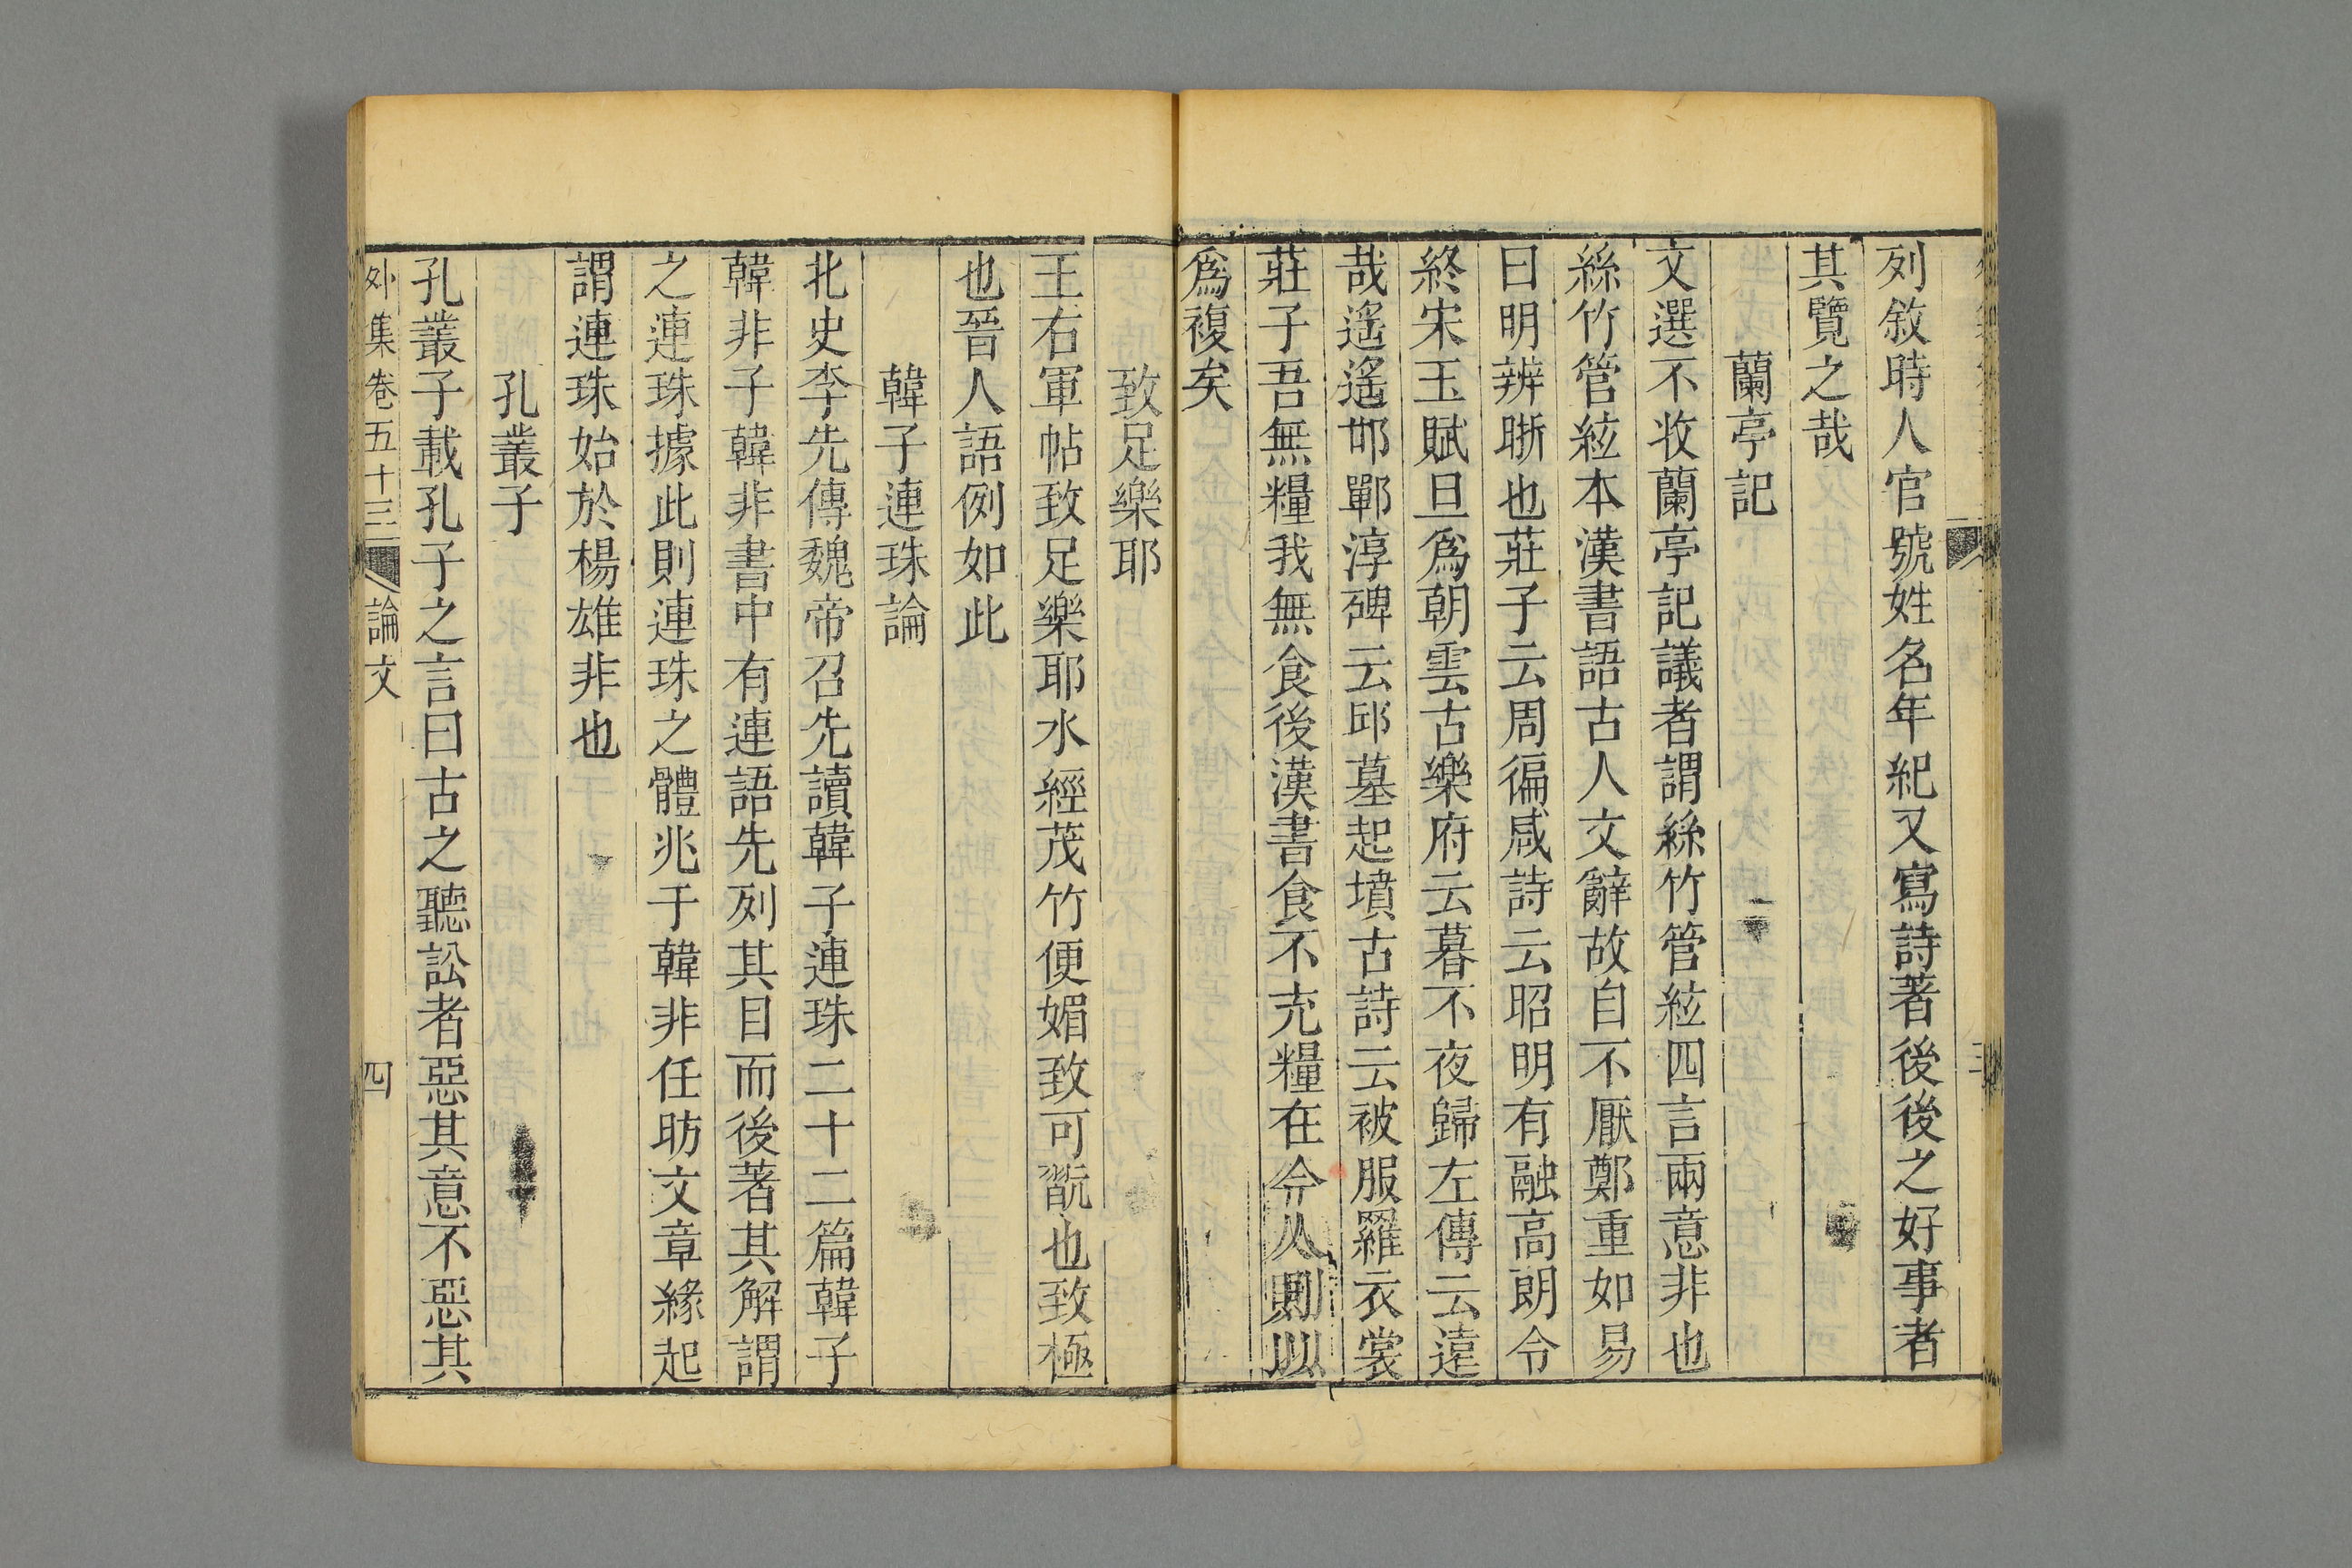 列敘時人官號姓名年紀又寫詩著後後之好事者
其覽之哉
蘭亭記
文選不收蘭亭記議者謂絲竹管絃四言兩意非也
絲竹管絃本漢書語古人文辭故自不厭鄭重如易
曰明辨晰也莊子云周徧咸詩云昭明有融高朗令
終宋玉賦旦爲朝雲古樂府云暮不夜歸左傳云遠
哉遙遙邯鄲淳碑云邱墓起墳古詩云被服羅衣裳
莊子吾無糧我無食後漢書食不充糧在今人則以
爲複矣
致足樂耶
王右軍帖致足樂耶水經茂竹便媚致可翫也致極
也晉人語例如此
韓子連珠論
北史李先傳魏帝召先讀韓子連珠二十二篇韓子
韓非子韓非書中有連語先列其目而後著其解謂
之連珠據此則連珠之體兆于韓非任昉文章緣起
謂連珠始於楊雄非也
孔叢子
孔叢子載孔子之言曰古之聽訟者惡其意不惡其
外集卷五十三 論文 四